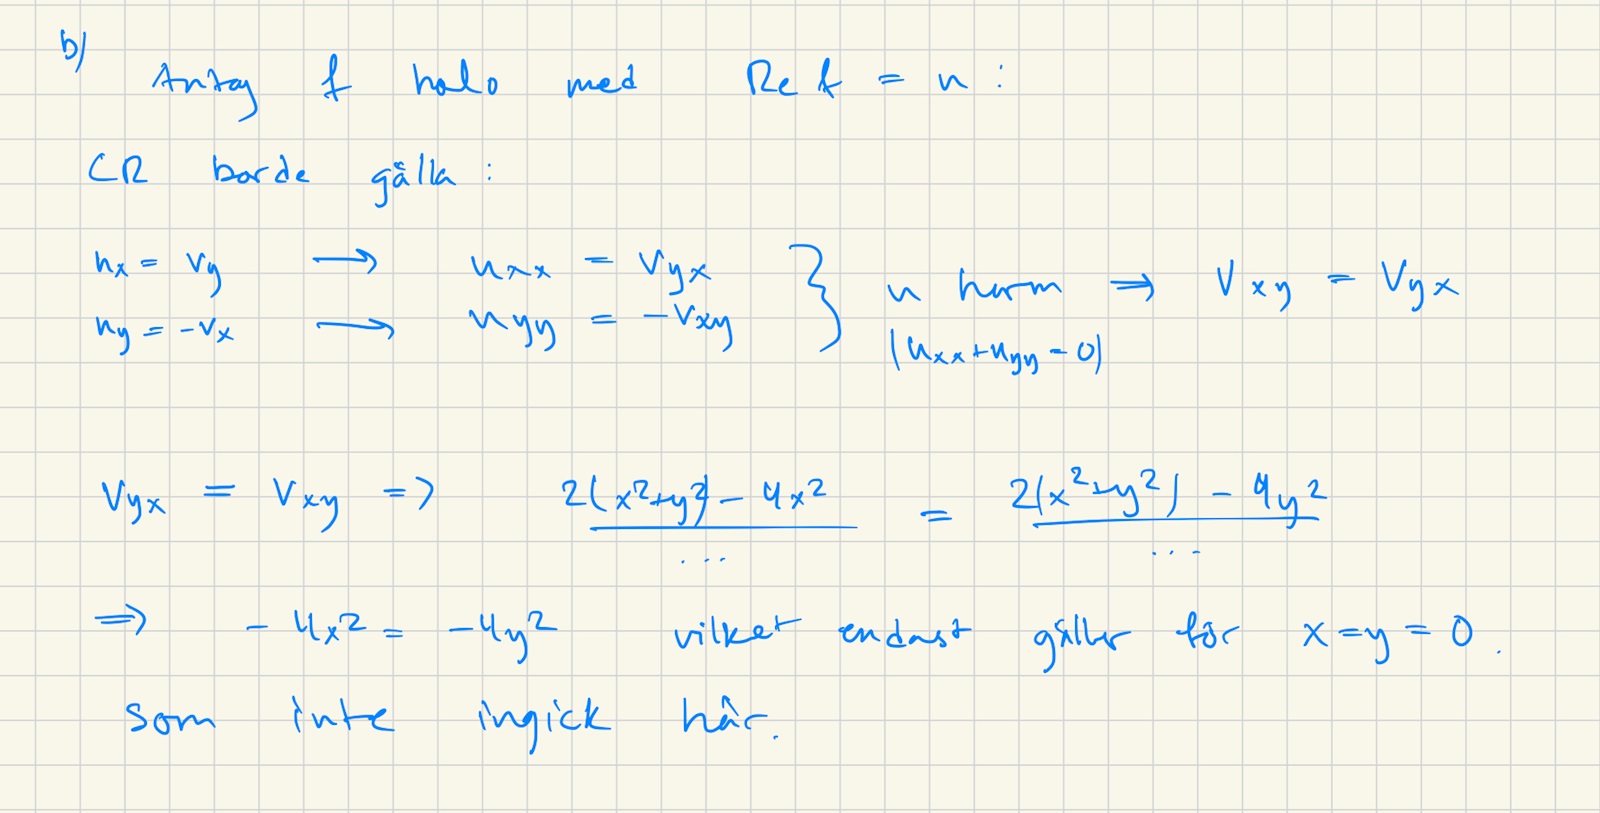 b)
Antag f holo med Re f = u :
CR borde gälla :
ux = vy → uxx = vyx
uy = -vx → uyy = -vxy
} u harm ⇒ Vxy = Vyx
(uxx + uyy = 0)
Vyx = Vxy => 2(x²+y²) - 4x² / ... = 2(x²+y²) - 4y² / ...
⇒ - 4x² = -4y² vilket endast gäller för x=y=0.
som inte ingick här.